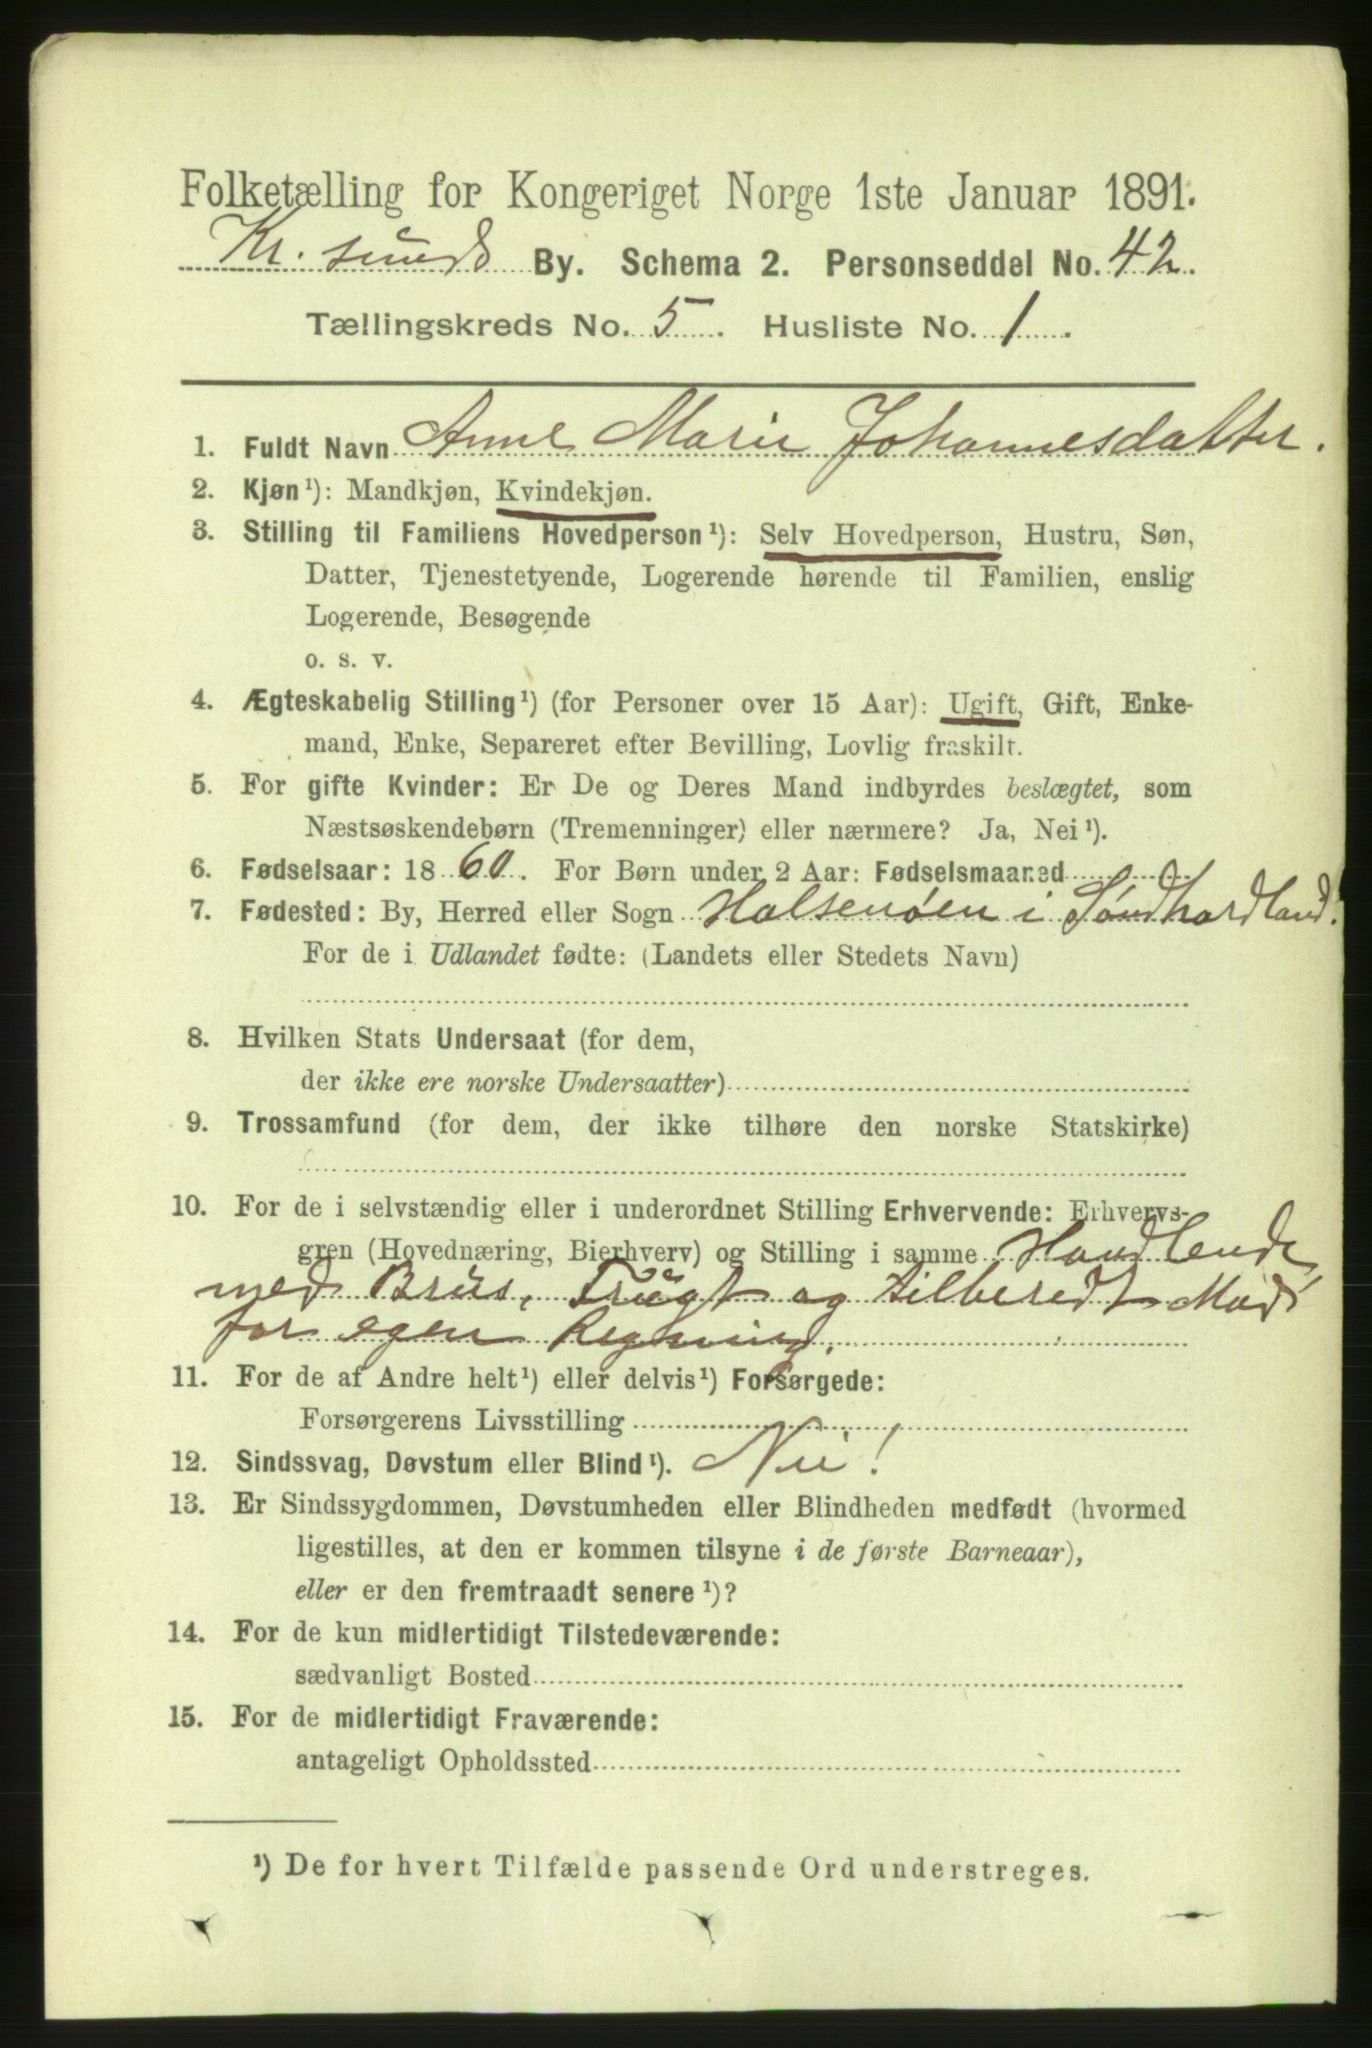 Folketælling for Kongeriget Norge 1ste Januar 1891.
Kr. sund By. Schema 2. Personseddel No. 42.
Tællingskreds No. 5. Husliste No. 1.
1. Fuldt Navn Anne Marie Johannesdatter.
2. Kjøn¹): Mandkjøn, Kvindekjøn.
3. Stilling til Familiens Hovedperson¹): Selv Hovedperson, Hustru, Søn,
Datter, Tjenestetyende, Logerende hørende til Familien, enslig
Logerende, Besøgende
o. s. v.
4. Ægteskabelig Stilling¹) (for Personer over 15 Aar): Ugift, Gift, Enke-
mand, Enke, Separeret efter Bevilling, Lovlig fraskilt.
5. For gifte Kvinder: Er De og Deres Mand indbyrdes beslægtet, som
Næstsøskendebørn (Tremenninger) eller nærmere? Ja, Nei¹).
6. Fødselsaar: 1860. For Børn under 2 Aar: Fødselsmaaned
7. Fødested: By, Herred eller Sogn Halsenøen i Søndhordland.
For de i Udlandet fødte: (Landets eller Stedets Navn)
8. Hvilken Stats Undersaat (for dem,
der ikke ere norske Undersaatter)
9. Trossamfund (for dem, der ikke tilhøre den norske Statskirke)
10. For de i selvstændig eller i underordnet Stilling Erhvervende: Erhvervs-
gren (Hovednæring, Bierhverv) og Stilling i samme Handlende
med Brus, Frugt og tilberedt Mad
for egen Regning.
11. For de af Andre helt¹) eller delvis¹) Forsørgede:
Forsørgerens Livsstilling
12. Sindssvag, Døvstum eller Blind¹). Nei!
13. Er Sindssygdommen, Døvstumheden eller Blindheden medfødt (hvormed
ligestilles, at den er kommen tilsyne i de første Barneaar),
eller er den fremtraadt senere¹)?
14. For de kun midlertidigt Tilstedeværende:
sædvanligt Bosted
15. For de midlertidigt Fraværende:
antageligt Opholdssted
¹) De for hvert Tilfælde passende Ord understreges.